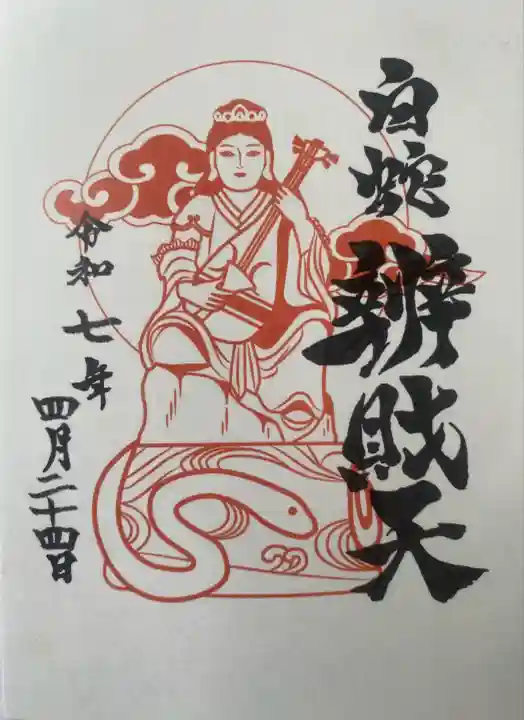 白蛇辨財天
令和七年
四月二十四日